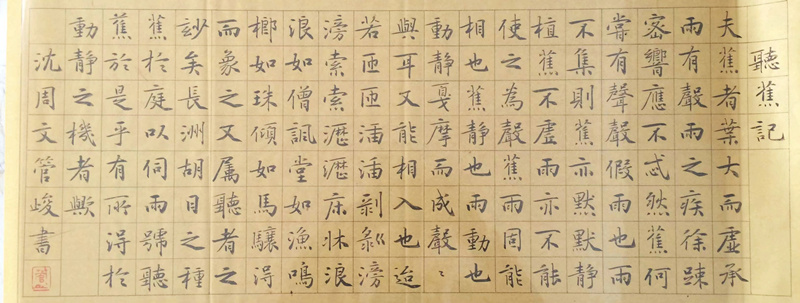 聽蕉記
夫蕉者葉大而虛承
雨有聲雨之疾徐踈
宻響應不忒然蕉何
甞有聲聲假雨也雨
不集則蕉亦默默靜
植蕉不虛雨亦不能
使之為聲蕉雨固能
相也蕉靜也雨動也
動靜戛摩而成聲〻
與耳又能相入也迨
若匝匝湱湱剝剝滂
滂索索瀝瀝床牀浪
浪如僧諷堂如漁鳴
榔如珠傾如馬驤得
而象之又属聽者之
玅矣長洲胡日之種
蕉於庭以伺雨號聽
蕉於是乎有所得於
動靜之機者歟
沈周文管峻書